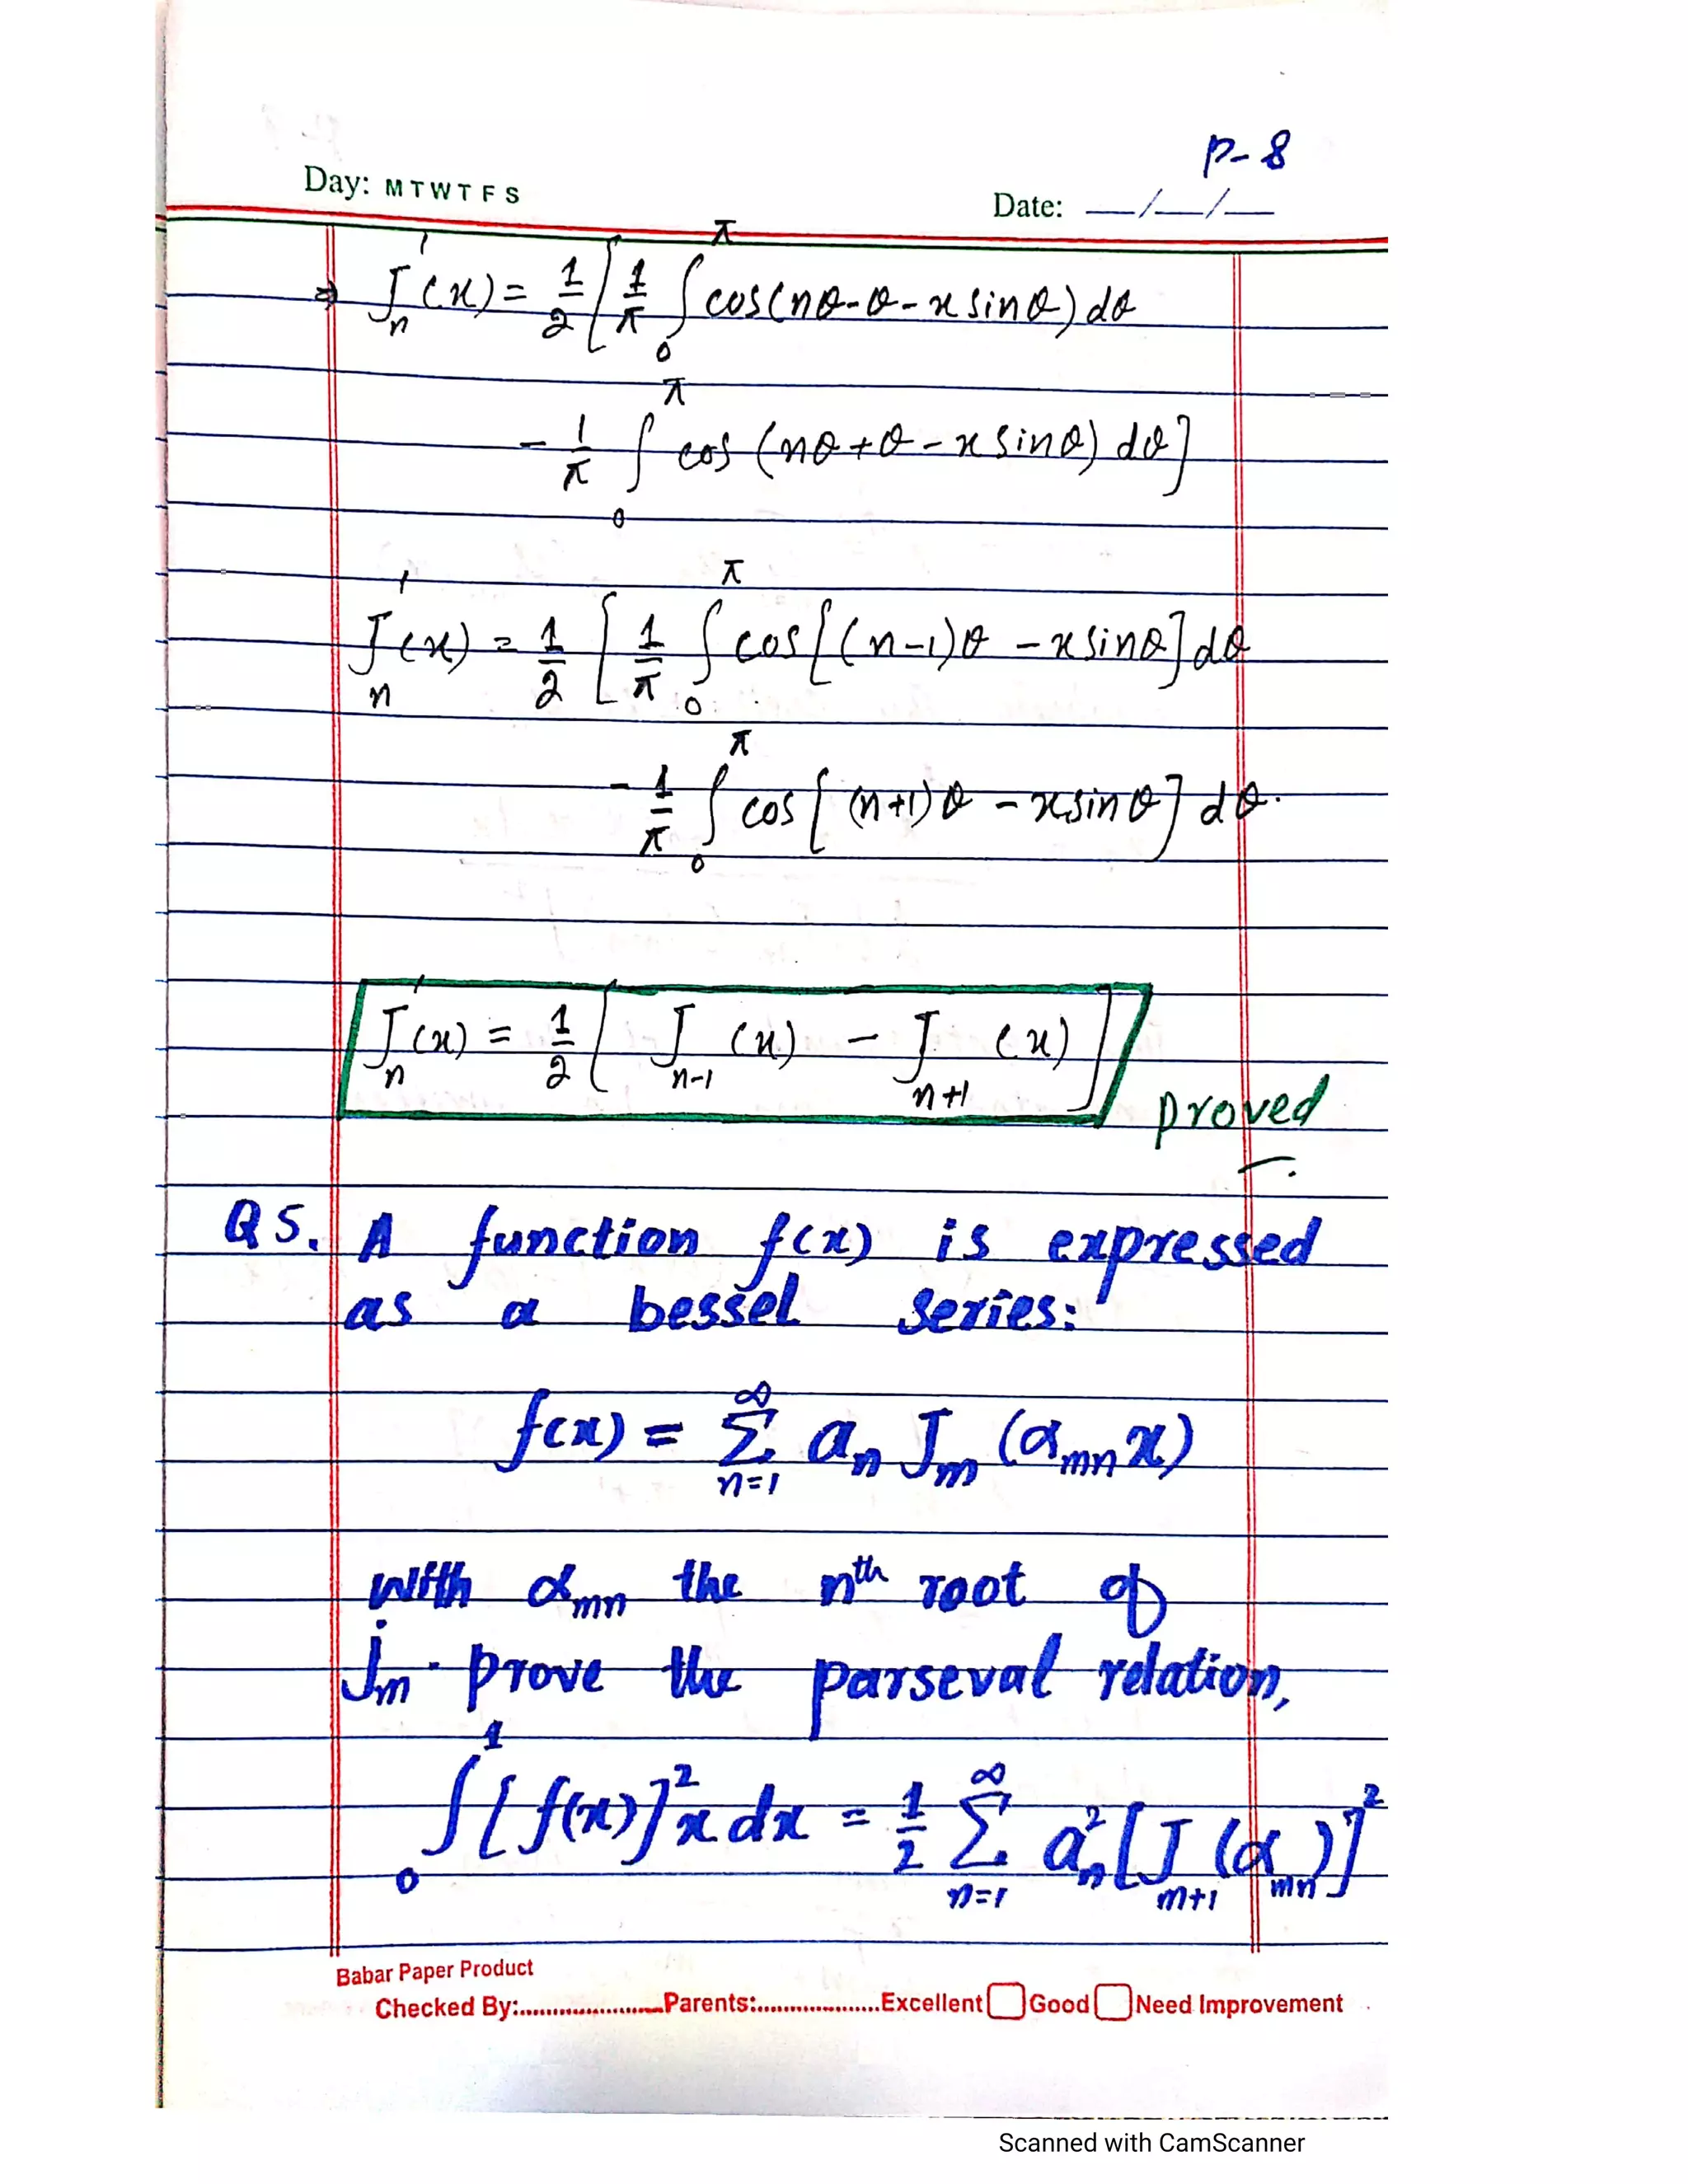 P-8
Day: M T W T F S
Date: __/__/__
⇒ Jₙ'(x) = 1/2 [ 1/π ∫₀^π cos(nθ-θ-x sinθ) dθ
- 1/π ∫₀^π cos (nθ+θ-x sinθ) dθ]
Jₙ'(x) = 1/2 [ 1/π ∫₀^π cos[(n-1)θ - x sinθ] dθ
- 1/π ∫₀^π cos[ (n+1)θ - x sinθ] dθ.
Jₙ'(x) = 1/2 [ Jₙ₋₁(x) - Jₙ₊₁(x) ]
proved
Q5. A function f(x) is expressed
as a bessel series:
f(x) = Σ_{n=1}^∞ aₙ Jₘ (αₘₙ x)
with αₘₙ the nth root of
Jₘ. prove the parseval relation,
∫₀¹ [f(x)]² x dx = 1/2 Σ_{n=1}^∞ aₙ² [Jₘ₊₁(αₘₙ)]²
Babar Paper Product
Checked By:......................Parents:....................Excellent Good Need Improvement
Scanned with CamScanner